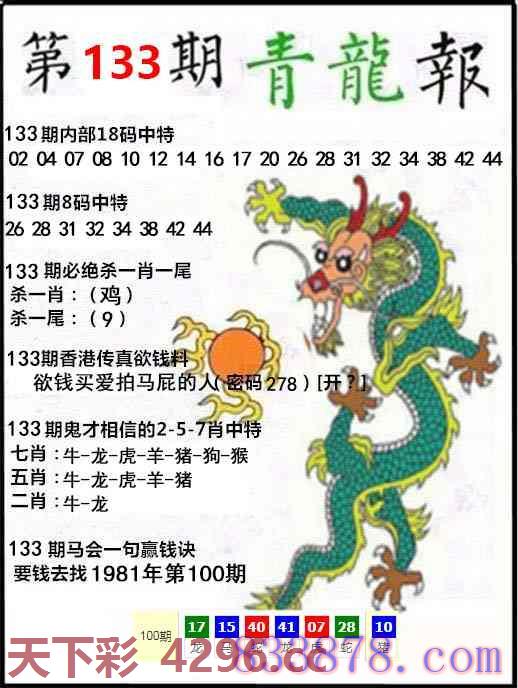 第133期青龍報
133期内部18码中特
02 04 07 08 10 12 14 16 17 20 26 28 31 32 34 38 42 44
133期8码中特
26 28 31 32 34 38 42 44
133期必绝杀一肖一尾
杀一肖：（鸡）
杀一尾：（9）
133期香港传真欲钱料
欲钱买爱拍马屁的人(密码278)[开？]
133期鬼才相信的2-5-7肖中特
七肖：牛-龙-虎-羊-猪-狗-猴
五肖：牛-龙-虎-羊-猪
二肖：牛-龙
133期马会一句赢钱诀
要钱去找1981年第100期
100期 17 15 40 41 07 28 10
龙 马 蛇 龙 虎 蛇 猪
天下彩 4296.cc
838878.com